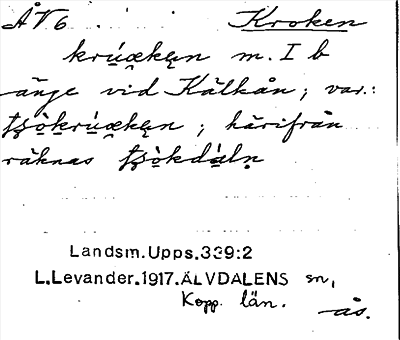 ÅV6 Kroken
krúækęn m. I b
änge vid Kälkån; var.:
tşòkrúækęn; härifrån
räknas tşòkdáln
Landsm.Upps.339:2
L.Levander.1917.ÄLVDALENS sn,
Kopp. län.
ås.